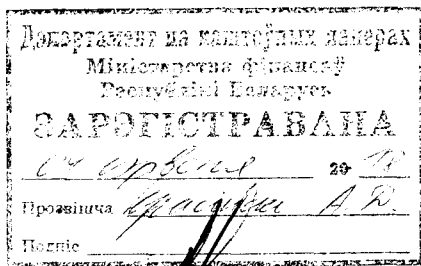 Дэпартамент па каштоўных паперах
Міністэрства фінансаў
Рэспублікі Беларусь
ЗАРЭГІСТРАВАНА
04 20 18
Прозвішча А. Д.
Подпіс